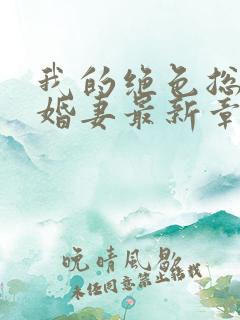 我的绝色总
婚妻最新章
晚晴风歇
未经同意禁止转载